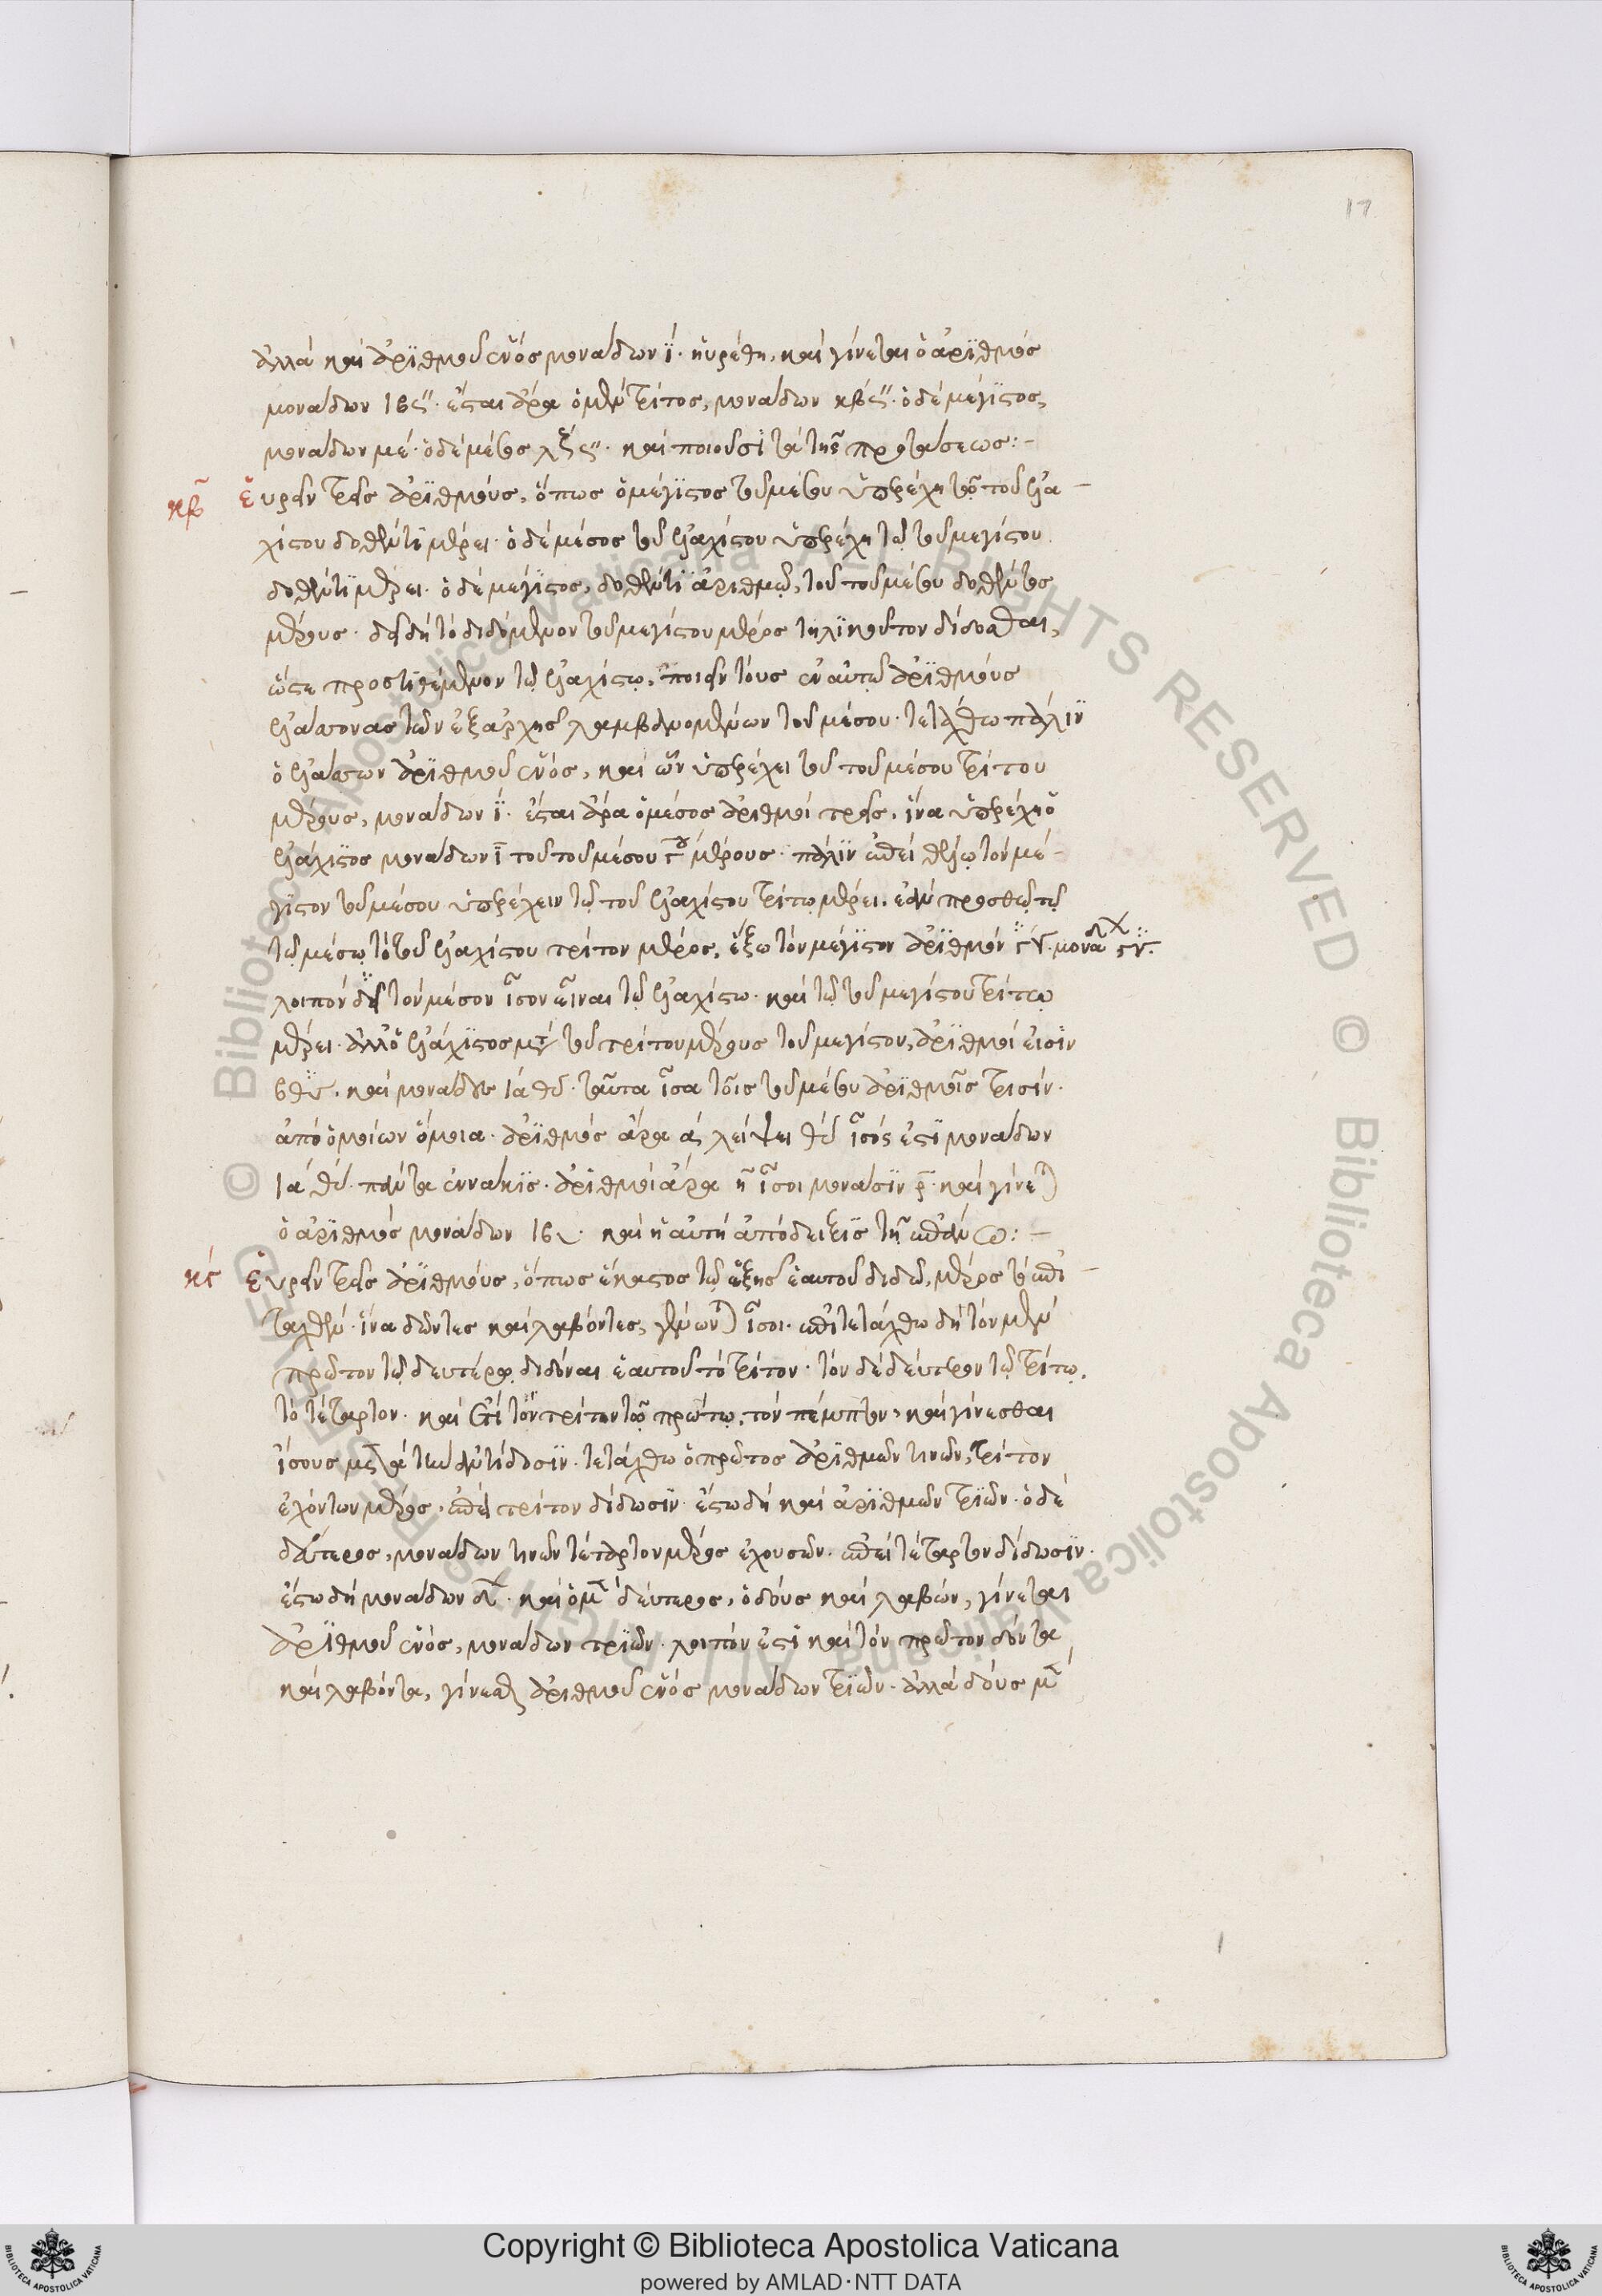 17
ἀλλὰ καὶ ἀρϊθμοῦ ἑνὸς μονάδων ϊ. ηὑρέθη, καὶ γίνεται ὁ ἀρϊθμὸς
μονάδων ιβς". ἔσται ἄρα ὁ μὲν τρίτος, μονάδων κβς". ὁ δὲ μέγϊστος,
μονάδων με. ὁ δὲ μέσος λζς". καὶ ποιοῦσϊ τὰ τῆς προτάσεως:-
κβ εὑρεῖν τρεῖς ἀρϊθμοὺς, ὅπως ὁ μέγϊστος τοῦ μέσου ὑπερέχη τῶ τοῦ ἐλα-
χίστου δοθέντϊ μέρει. ὁ δὲ μέσος τοῦ ἐλαχίστου ὑπερέχη τῶ τοῦ μεγίστου
δοθέντϊ μέρει. ὁ δὲ μέγϊστος, δοθέντϊ ἀριθμῶ, τοῦ τοῦ μέσου δοθέντος
μέρους. δεῖ δὴ τὸ διδόμενον τοῦ μεγίστου μέρος τηλϊκοῦτον δίδοσθαι,
ὥστε προστϊθέμενον τῶ ἐλαχίστω, ποιεῖν τοὺς ἐν αὐτῶ ἀρϊθμοὺς
ἐλάσσονας τῶν ἐξαρχῆς λαμβανομένων τοῦ μέσου. τετάχθω πάλϊν
ὁ ἐλάσσων ἀρϊθμοῦ ἑνὸς, καὶ ὧν ὑπερέχει τοῦ τοῦ μέσου τρίτου
μέρους, μονάδων ϊ. ἔσται ἄρα ὁ μέσος ἀριθμοὶ τρεῖς, ἵνα ὑπερέχη ὁ
ἐλάχϊστος μονάδων ϊ τοῦ τοῦ μέσου γου μέρους. πάλϊν ἐπεὶ θέλω τὸν μέ-
γϊστον τοῦ μέσου ὑπερέχειν τῶ τοῦ ἐλαχίστου τρίτω μέρει. ἐὰν προσθῶ τῶ
τῶ μέσω τὸ τοῦ ἐλαχίστου τρίτον μέρος, ἕξω τὸν μέγϊστον ἀρϊθμὸν
λοιπὸν δεῖ τὸν μέσον ἴσον εἶναι τῶ ἐλαχίστω. καὶ τῶ τοῦ μεγίστου τρίτω
μέρει. ἀλλ' ὁ ἐλάχϊστος μετὰ τοῦ τρίτου μέρους τοῦ μεγίστου, ἀρϊθμοί εἰσϊν
καὶ μονάδες ταῦτα ἴσα τοῖς τοῦ μέσου ἀρϊθμοῖς τρισίν.
ἀπὸ ὁμοίων ὅμοια. ἀρϊθμὸς ἄρα λείψει ἴσος ἐστϊ μονάδων
πάντα ἐννάκϊς. ἀρϊθμοὶ ἄρα η ἴσοι μονάσϊν ρ. καὶ γίνεται
ὁ ἀρϊθμὸς μονάδων ιβ. καὶ ἡ αὐτὴ ἀπόδειξϊς τῆ ἐπάνω:-
κς εὑρεῖν τρεῖς ἀρϊθμοὺς, ὅπως ἕκαστος τῶ ἑξῆς ἑαυτοῦ διδῶ, μέρος τὸ ἐπι-
ταχθέν. ἵνα δῶντες καὶ λαβόντες, γένωνται ἴσοι. ἐπιτετάχθω δὴ τὸν μὲν
πρῶτον τῶ δευτέρω διδόναι ἑαυτοῦ τὸ τρίτον. τὸν δὲ δεύτερον τῶ τρίτω,
τὸ τέταρτον. καὶ ἔτι τὸν τρίτον τῶ πρώτω, τὸν πέμπτον, καὶ γίνεσθαι
ἴσους μετὰ τὴν ἀντίδοσϊν. τετάχθω ὁ πρῶτος ἀρϊθμῶν τινῶν, τρίτον
ἐχόντων μέρος, ἐπεὶ τρίτον δίδωσϊν. ἔστω δὴ καὶ ἀρϊθμῶν τρϊῶν. ὁ δὲ
δεύτερος, μονάδων τινῶν τέταρτον μέρος ἐχουσῶν. ἐπεὶ τέταρτον δίδωσϊν.
ἔστω δὴ μονάδων δ. καὶ ὁ μὲν δεύτερος, ὁ δοὺς καὶ λαβὼν, γίνεται
ἀρϊθμοῦ ἑνὸς, μονάδων τρϊῶν. λοιπὸν ἐστὶ καὶ τὸν πρῶτον δόντα
καὶ λαβόντα, γίνεσθαι ἀριθμοῦ ἑνὸς μονάδων τρϊῶν. ἀλλὰ δοὺς μὲν
Copyright © Biblioteca Apostolica Vaticana
powered by AMLAD·NTT DATA